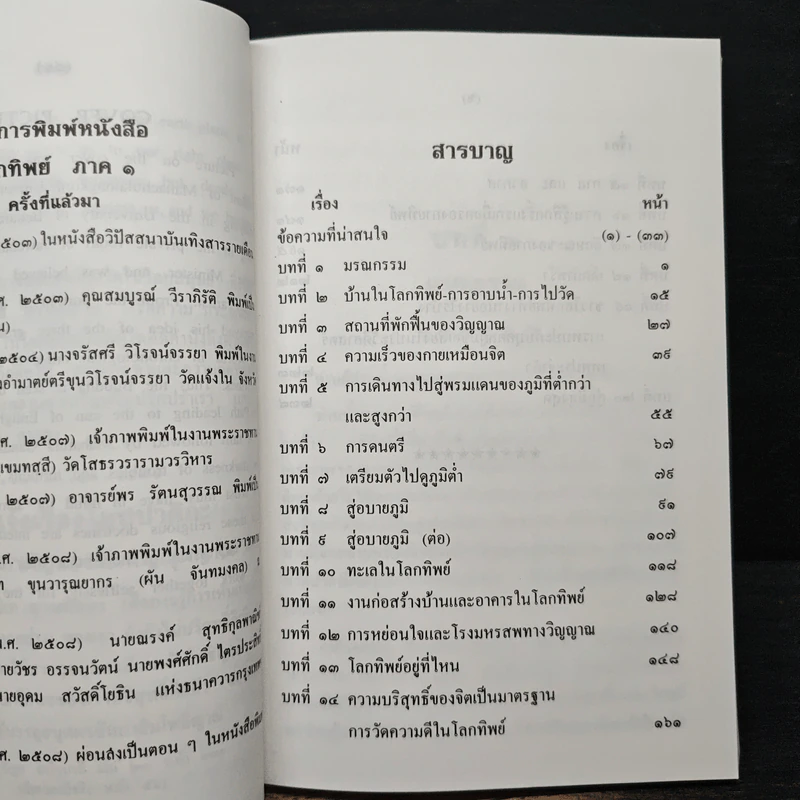 การพิมพ์หนังสือ
กทิพย์ ภาค ๑
ครั้งที่แล้วมา
๕๐๓) ในหนังสือวิปัสสนาบันเทิงสารรายเดือน
ศ. ๒๕๐๓) คุณสมบูรณ์ วีราภิรัติ พิมพ์เป็น
น)
๒๕๐๔) นางจรัสศรี วิโรจน์จรรยา พิมพ์ในงาน
งอำมาตย์ตรีขุนวิโรจน์จรรยา วัดแจ้งใน จังหวั
ศ. ๒๕๐๗) เจ้าภาพพิมพ์ในงานพระราชทาน
เขมทสฺสี) วัดโสธรวรารามวรวิหาร
๒๕๐๗) อาจารย์พร รัตนสุวรรณ พิมพ์เป็
ศ. ๒๕๐๘) เจ้าภาพพิมพ์ในงานพระราชทาน
ท ขุนวารุณยากร (ผัน จันทมงคล)
พ.ศ. ๒๕๐๘) นายณรงค์ สุทธิกุลพาณิช
ายวัชร อรรจนวัฒน์ นายพงศ์ศักดิ์ ไตรประสิท
นายอุดม สวัสดิ์โยธิน แห่งธนาคารกรุงเทพ
ศ. ๒๕๐๘) ผ่อนส่งเป็นตอน ๆ ในหนังสือ
สารบาญ
เรื่อง หน้า
ข้อความที่น่าสนใจ (๑) - (๓๓)
บทที่ ๑ มรณกรรม ๑
บทที่ ๒ บ้านในโลกทิพย์-การอาบน้ำ-การไปวัด ๑๕
บทที่ ๓ สถานที่พักฟื้นของวิญญาณ ๒๗
บทที่ ๔ ความเร็วของกายเหมือนจิต ๓๙
บทที่ ๕ การเดินทางไปสู่พรมแดนของภูมิที่ต่ำกว่า
และสูงกว่า ๕๕
บทที่ ๖ การดนตรี ๖๗
บทที่ ๗ เตรียมตัวไปดูภูมิต่ำ ๗๙
บทที่ ๘ สู่อบายภูมิ ๙๑
บทที่ ๙ สู่อบายภูมิ (ต่อ) ๑๐๗
บทที่ ๑๐ ทะเลในโลกทิพย์ ๑๑๘
บทที่ ๑๑ งานก่อสร้างบ้านและอาคารในโลกทิพย์ ๑๒๘
บทที่ ๑๒ การหย่อนใจและโรงมหรสพทางวิญญาณ ๑๔๐
บทที่ ๑๓ โลกทิพย์อยู่ที่ไหน ๑๔๘
บทที่ ๑๔ ความบริสุทธิ์ของจิตเป็นมาตรฐาน
การวัดความดีในโลกทิพย์ ๑๖๑